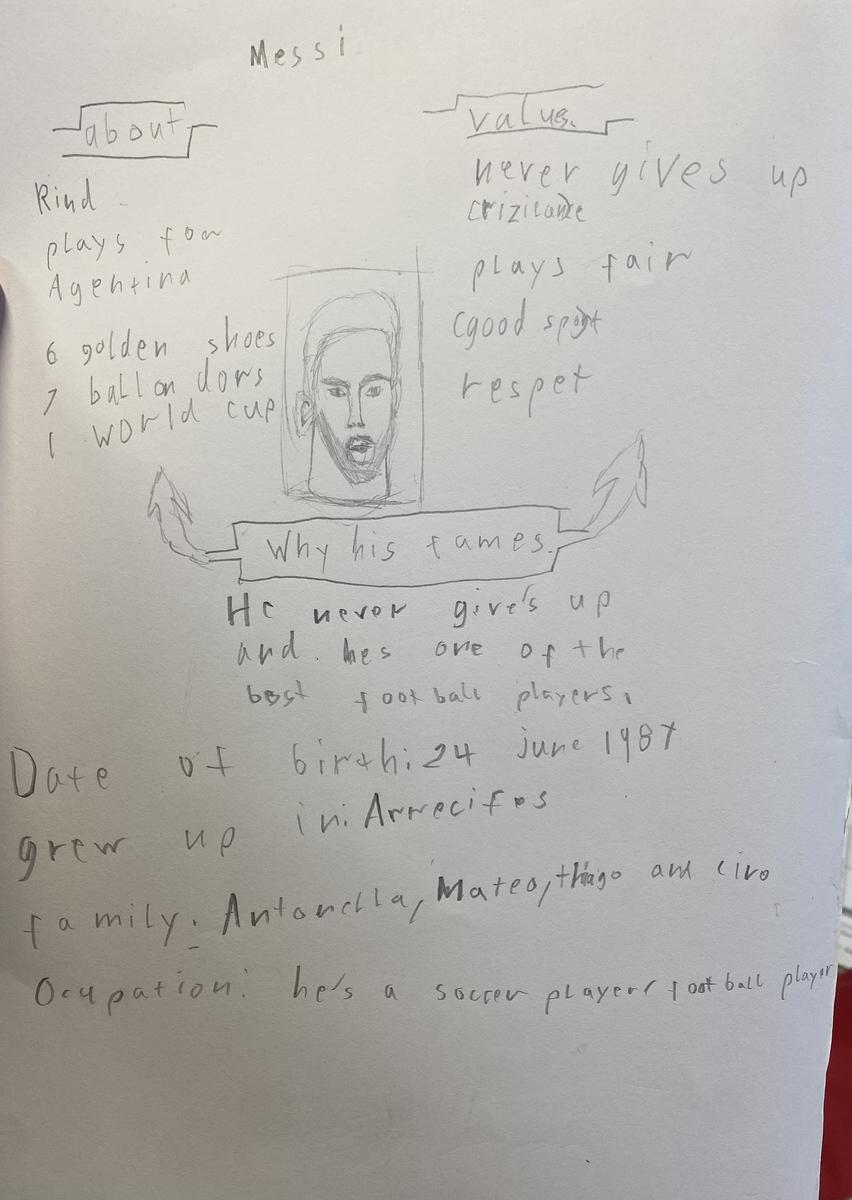 Messi
about
Kind
plays for
Agentina
6 golden shoes
7 ballon dors
1 world cup
values.
never gives up
plays fair
(good sport
respet
Why his fames.
He never give's up
and. hes one of the
best football players.
Date of birth: 24 june 1987
grew up in: Arrecifes
family: Antonella, Mateo, thiago and ciro
Ocupation: he's a soccer player/football player